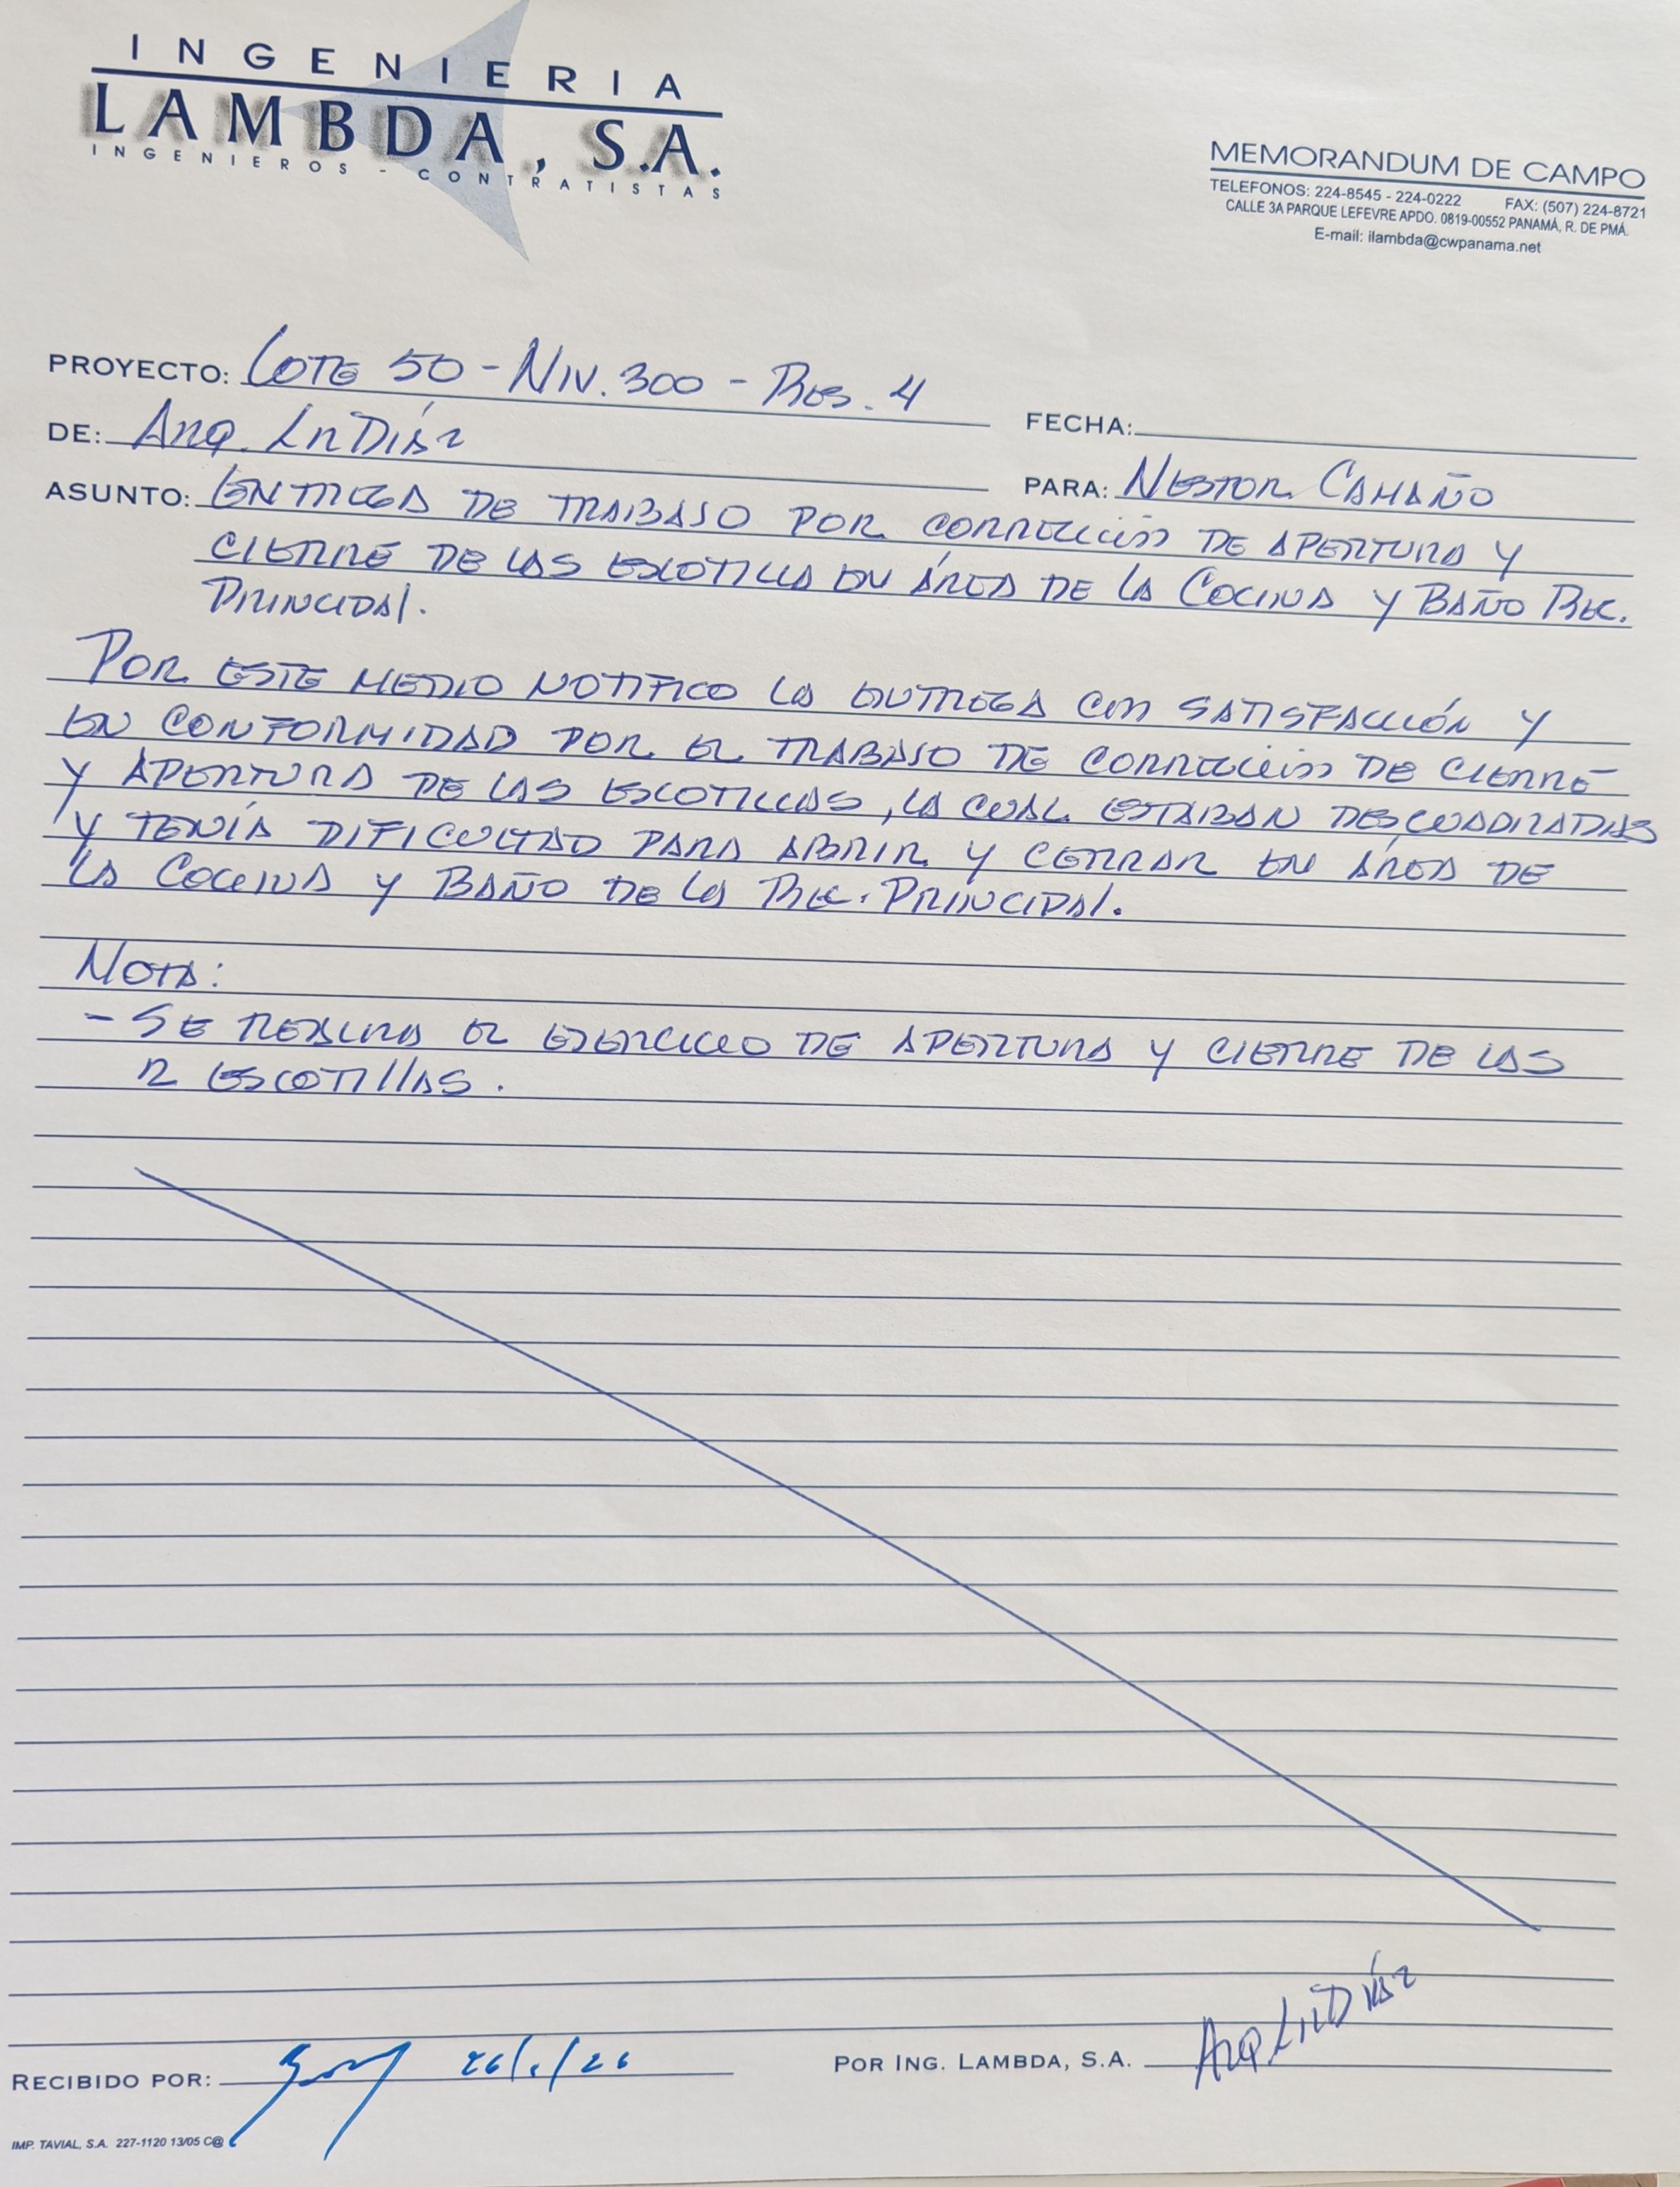 INGENIERIA
LAMBDA, S.A.
INGENIEROS - CONTRATISTAS
MEMORANDUM DE CAMPO
TELEFONOS: 224-8545 - 224-0222 FAX: (507) 224-8721
CALLE 3A PARQUE LEFEVRE APDO. 0819-00552 PANAMÁ, R. DE PMÁ.
E-mail: ilambda@cwpanama.net
PROYECTO: LOTE 50 - NIV. 300 - RES. 4
FECHA:
DE: ARQ. LIN DÍAZ
PARA: NESTOR CAMAÑO
ASUNTO: ENTREGA DE TRABAJO POR CORRECCIÓN DE APERTURA Y
CIERRE DE LAS ESCOTILLA EN ÁREA DE LA COCINA Y BAÑO REC.
PRINCIPAL.
POR ESTE MEDIO NOTIFICO LA ENTREGA CON SATISFACCIÓN Y
EN CONFORMIDAD POR EL TRABAJO DE CORRECCIÓN DE CIERRE
Y APERTURA DE LAS ESCOTILLAS, LA CUAL ESTABAN DESCUADRADAS
Y TENÍA DIFICULTAD PARA ABRIR Y CERRAR EN ÁREA DE
LA COCINA Y BAÑO DE LA REC. PRINCIPAL.
NOTA:
- SE REALIZA EL EJERCICIO DE APERTURA Y CIERRE DE LAS
2 ESCOTILLAS.
RECIBIDO POR: 26/1/26
POR ING. LAMBDA, S.A. ARQ LIN DÍAZ
IMP. TAVIAL, S.A. 227-1120 13/05 C@